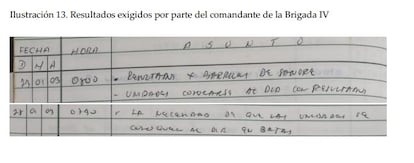 Ilustración 13. Resultados exigidos por parte del comandante de la Brigada IV
FECHA HORA ASUNTO
D M A
29 01 03 0800 - RESULTADOS X BARRILES DE SANGRE
- UNIDADES COLOCARSE AL DIA CON RESULTADOS
28 01 03 0740 - LA NECESIDAD DE QUE LAS UNIDADES SE
COLOQUEN AL DIA EN BAJAS